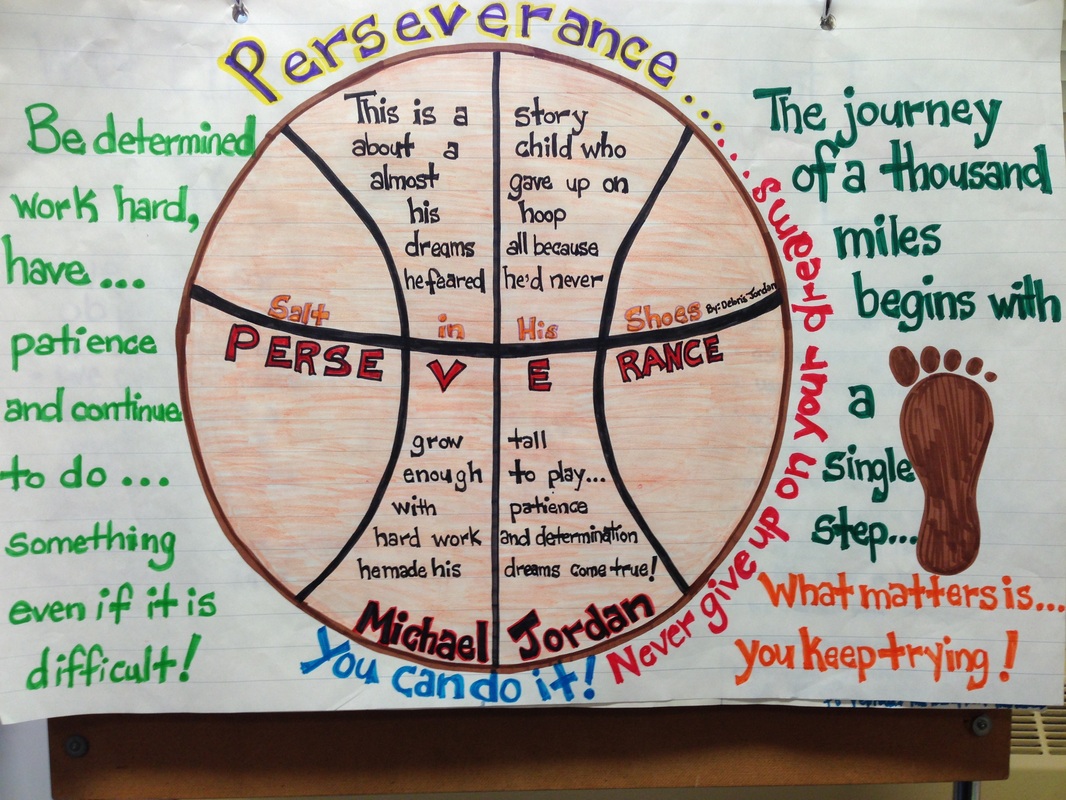 Perseverance.......
Be determined
work hard,
have...
patience
and continue
to do ...
something
even if it is
difficult!
This is a story
about a child who
almost gave up on
his hoop
dreams all because
he feared he'd never
Salt in His Shoes By: Debris Jordan
PERSE V E RANCE
grow tall
enough to play...
with patience
hard work and determination
he made his dreams come true!
Michael Jordan
You can do it!
Never give up on your dreams.
The journey
of a thousand
miles
begins with
a
single
step...
What matters is...
you keep trying!